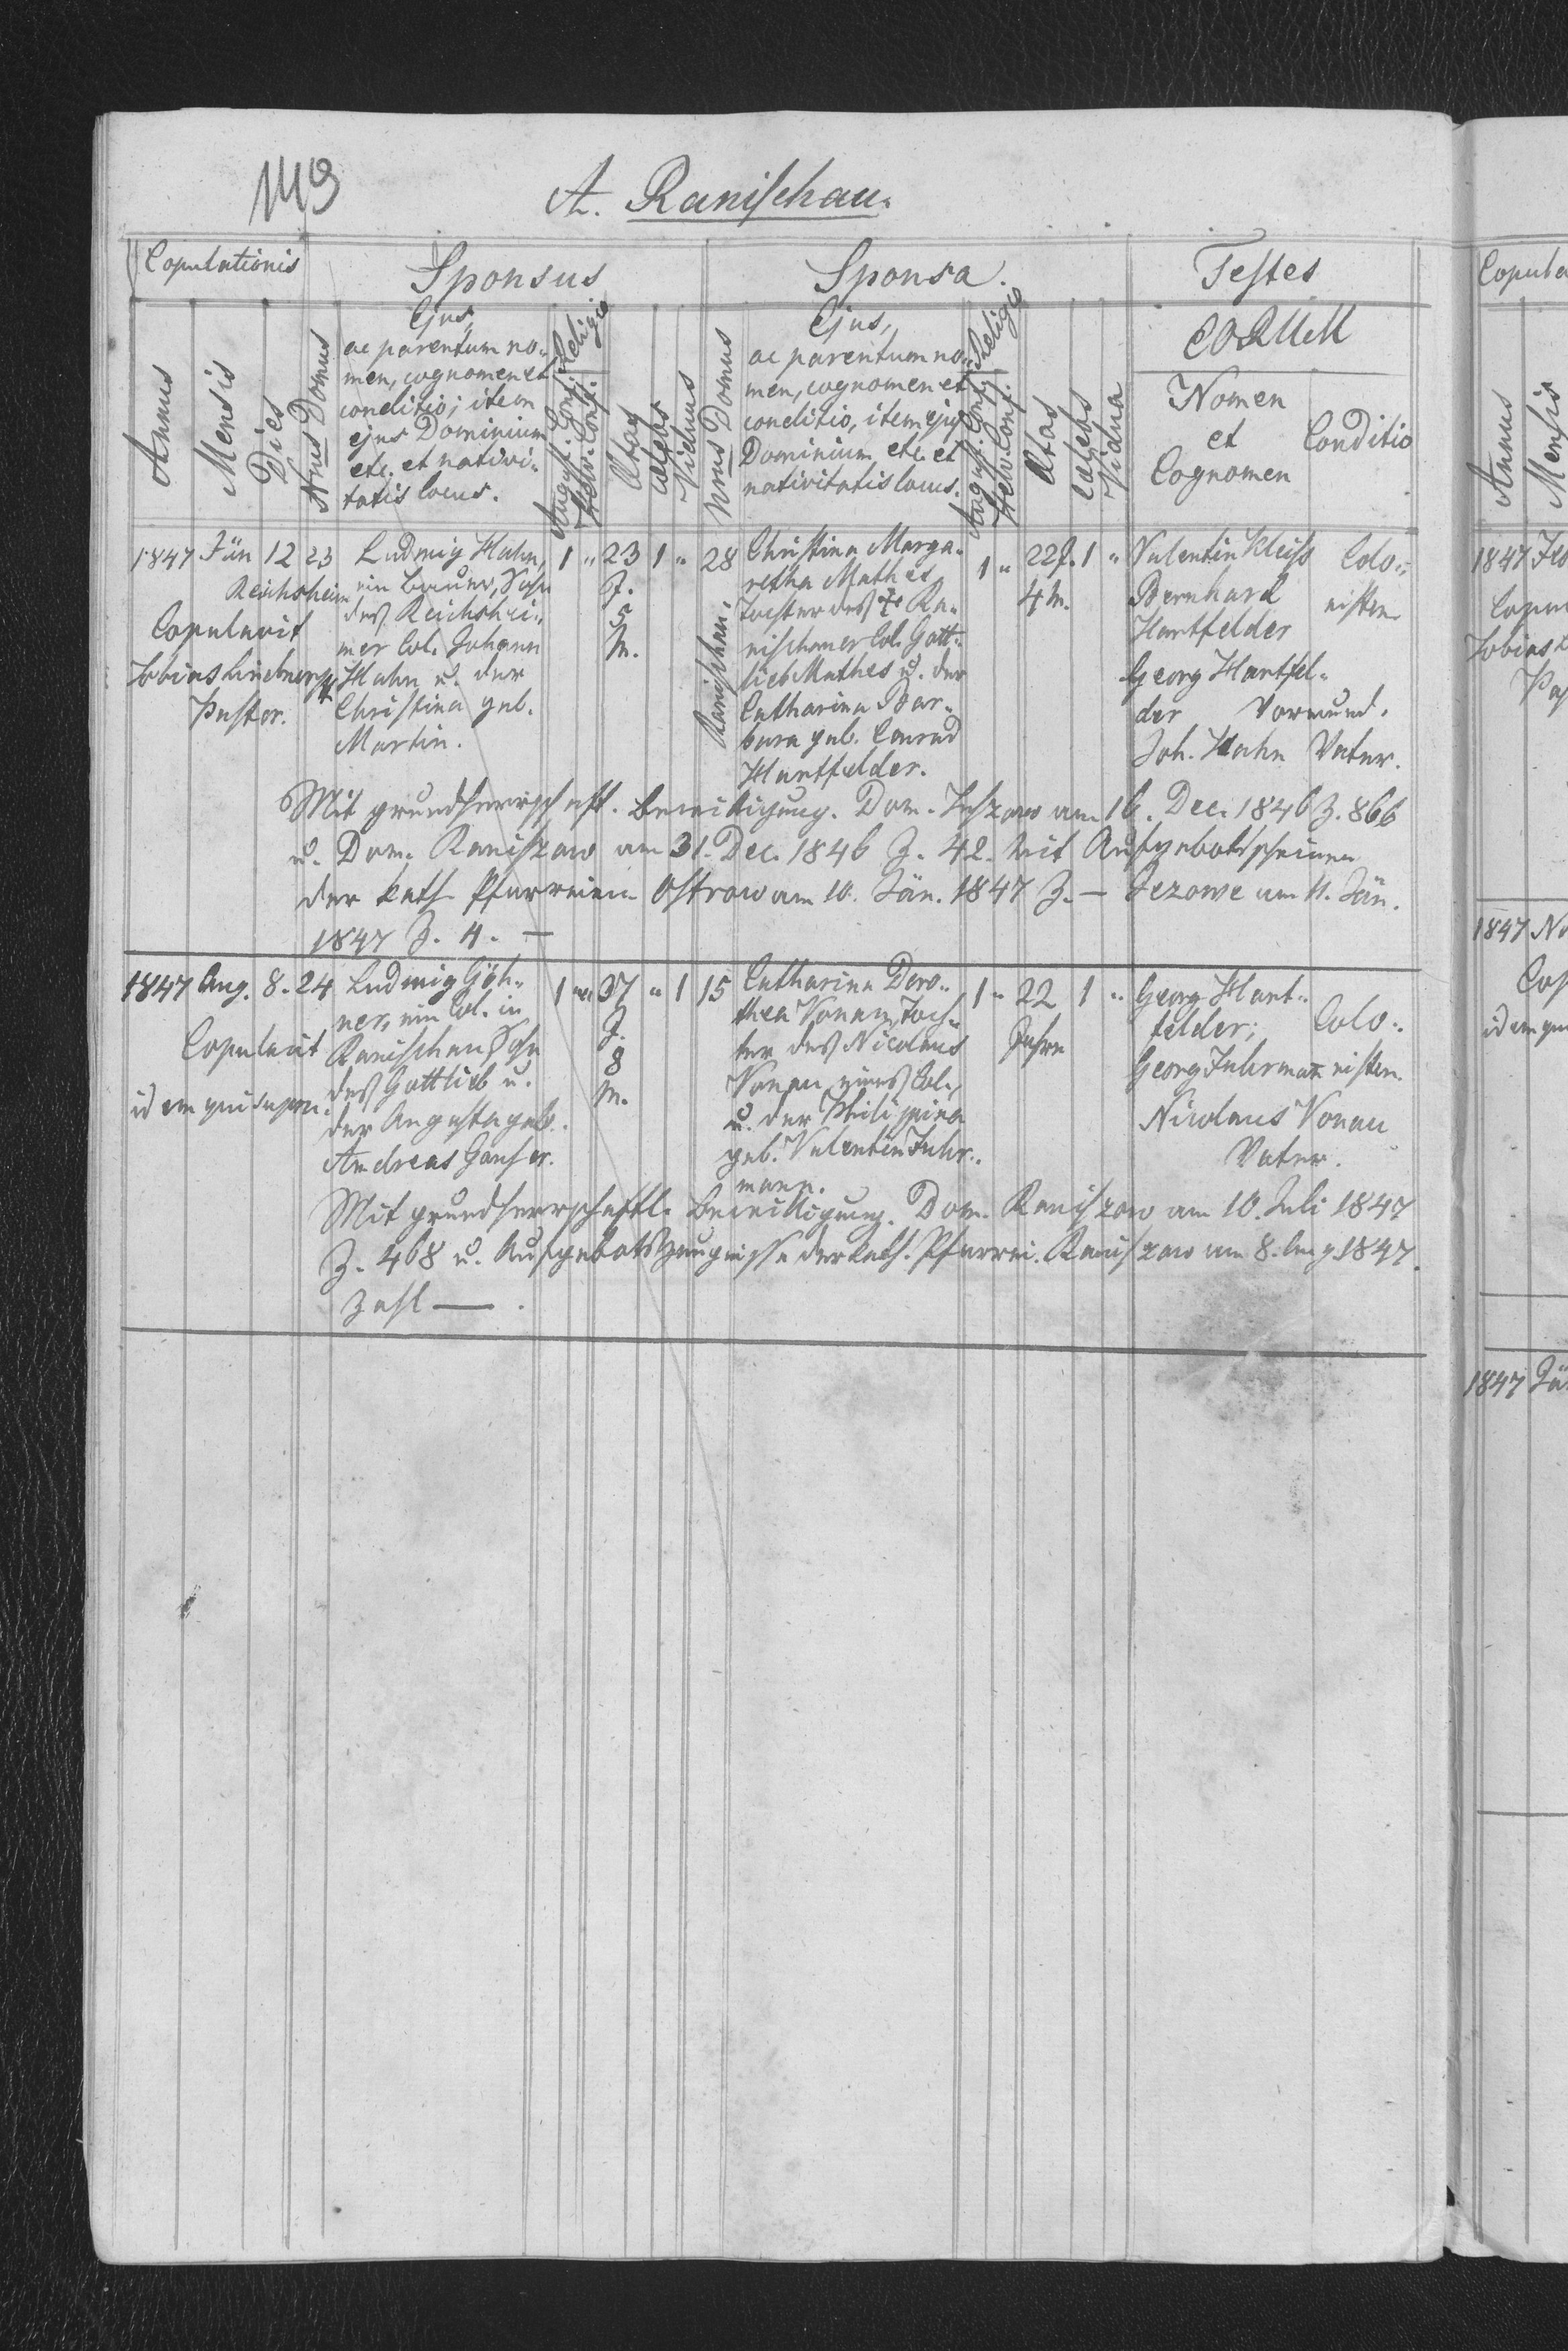 149
A. Ranischau.
Copulationis
Sponsus
Sponsa.
Testes
Annus
Mensis
Dies
Nrus Domus
Ejus,
ac parentum no-
men, cognomen et
conditio; item
ejus Dominium
etc. et nativi-
tatis locus.
Religio
August. Conf.
Helv. Conf.
Aetas
Caelebs
Viduus
Nrus Domus
Ejus,
ac parentum no-
men, cognomen et
conditio, item ejus
Dominium etc. et
nativitatis locus.
Religio
August. Conf.
Helv. Conf.
Aetas
Caelebs
Vidua
eorum
Nomen
et
Cognomen
Conditio
1847 Jän 12 23
Reichsheim
Copulavit
Tobias
Pastor.
Ludwig Hahn,
ein Bauer, Sohn
des Reichshei-
mer Col. Johann
Hahn u. der
Christina geb.
Martin.
1 " 23 1 "
J.
5
M.
28
Ranischau.
Christina Marga-
retha Mathes
Tochter des † Ra-
nischauer Col. Gott-
lieb Mathes u. der
Catharina Bar-
bara geb. Conrad
Hartfelder.
1 " 22 J. 1 "
4 M.
Valentin Kleiss Colo-
Bernhard nisten
Hartfelder
Georg Hartfel-
der Vormund.
Joh. Hahn Vater.
Mit grundherrschaft. Bewilligung. Dom. am 16. Dec. 1846 Z. 866
u. Dom. Raniszow am 31. Dec. 1846 Z. 42. Mit Aufgebotsscheinen
der kath. Pfarreien Ostrow am 10. Jän. 1847 Z. — Jezowe am 11. Jän.
1847 Z. 4. —
1847 Aug. 8. 24
Copulavit
idem qui supra.
Ludwig Göh-
ner, ein Col. in
Ranischau Sohn
des Gottlieb u.
der Augusta geb.
Andreas Ganser.
1 " 37 " 1
J.
8
M.
15
Catharina Doro-
thea Vonau, Toch-
ter des Nicolaus
Vonau eines Col.,
u. der Philippina
geb. Valentin Fuhr-
mann.
1 " 22 1 "
Jahre
Georg Hart-
felder; Colo-
Georg Fuhrman nisten.
Nicolaus Vonau
Vater.
Mit grundherrschaftl. Bewilligung. Dom. Raniszow am 10. Juli 1847
Z. 468 u. Aufgebotszeugnisse der kath. Pfarrei. Raniszow am 8. Aug 1847.
Zahl — .
Annus
Mensis
1847
1847
1847